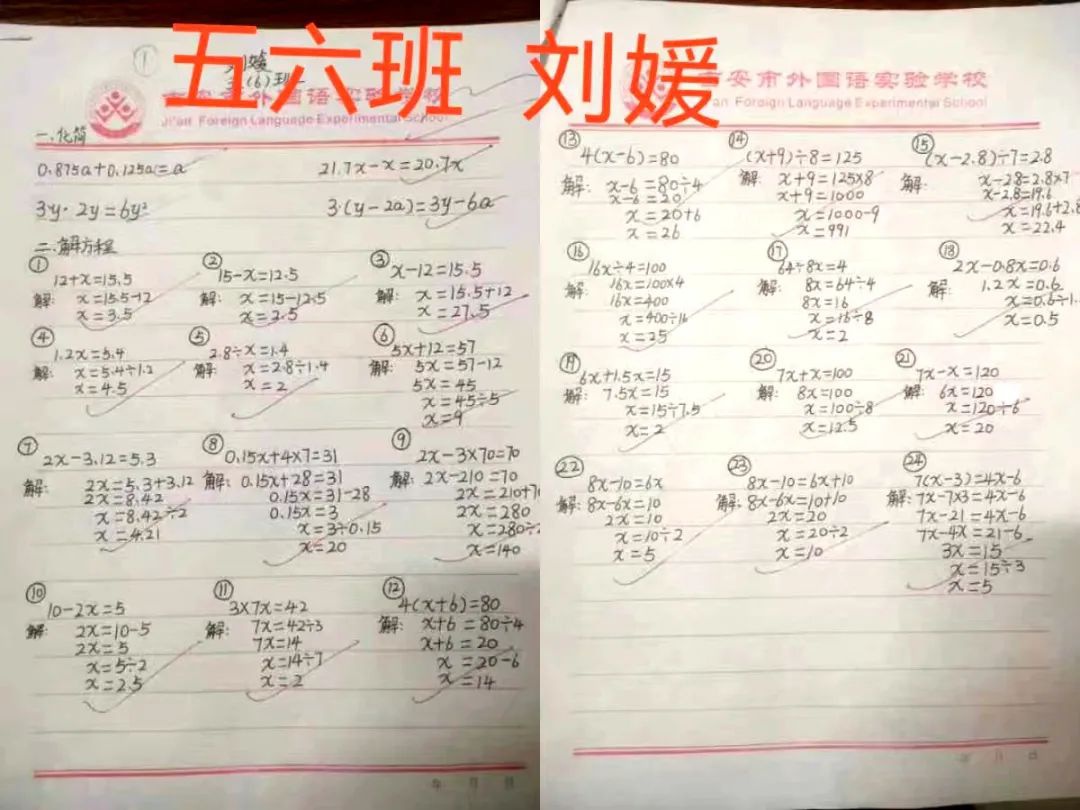 五六班 刘媛
①
刘媛
五(6)班
吉安市外国语实验学校
Ji'an Foreign Language Experimental School
一.化简
0.875a+0.125a=a
21.7x-x=20.7x
3y·2y=6y²
3·(y-2a)=3y-6a
二.解方程
①
12+x=15.5
解: x=15.5-12
x=3.5
②
15-x=12.5
解: x=15-12.5
x=2.5
③
x-12=15.5
解: x=15.5+12
x=27.5
④
1.2x=5.4
解: x=5.4÷1.2
x=4.5
⑤
2.8÷x=1.4
解: x=2.8÷1.4
x=2
⑥
5x+12=57
解: 5x=57-12
5x=45
x=45÷5
x=9
⑦
2x-3.12=5.3
解: 2x=5.3+3.12
2x=8.42
x=8.42÷2
x=4.21
⑧
0.15x+4×7=31
解: 0.15x+28=31
0.15x=31-28
0.15x=3
x=3÷0.15
x=20
⑨
2x-3×70=70
解: 2x-210=70
2x=210+70
2x=280
x=280÷2
x=140
⑩
10-2x=5
解: 2x=10-5
2x=5
x=5÷2
x=2.5
⑪
3×7x=42
解: 7x=42÷3
7x=14
x=14÷7
x=2
⑫
4(x+6)=80
解: x+6=80÷4
x+6=20
x=20-6
x=14
年 月 日
吉安市外国语实验学校
Ji'an Foreign Language Experimental School
⑬
4(x-6)=80
解: x-6=80÷4
x-6=20
x=20+6
x=26
⑭
(x+9)÷8=125
解: x+9=125×8
x+9=1000
x=1000-9
x=991
⑮
(x-2.8)÷7=2.8
解: x-2.8=2.8×7
x-2.8=19.6
x=19.6+2.8
x=22.4
⑯
16x÷4=100
解: 16x=100×4
16x=400
x=400÷16
x=25
⑰
64÷8x=4
解: 8x=64÷4
8x=16
x=16÷8
x=2
⑱
2x-0.8x=0.6
解: 1.2x=0.6
x=0.6÷1.
x=0.5
⑲
6x+1.5x=15
解: 7.5x=15
x=15÷7.5
x=2
⑳
7x+x=100
解: 8x=100
x=100÷8
x=12.5
㉑
7x-x=120
解: 6x=120
x=120÷6
x=20
㉒
8x-10=6x
解: 8x-6x=10
2x=10
x=10÷2
x=5
㉓
8x-10=6x+10
解: 8x-6x=10+10
2x=20
x=20÷2
x=10
㉔
7(x-3)=4x-6
解: 7x-7×3=4x-6
7x-21=4x-6
7x-4x=21-6
3x=15
x=15÷3
x=5
年 月 日